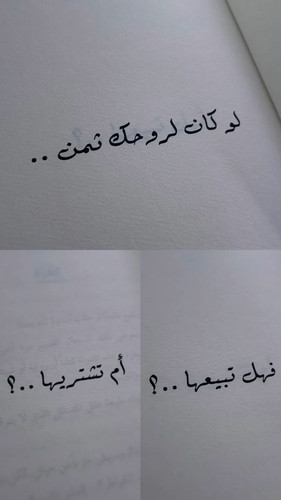 لو كان لروحك ثمن ..
فهل تبيعها ..؟
أم تشتريها ..؟